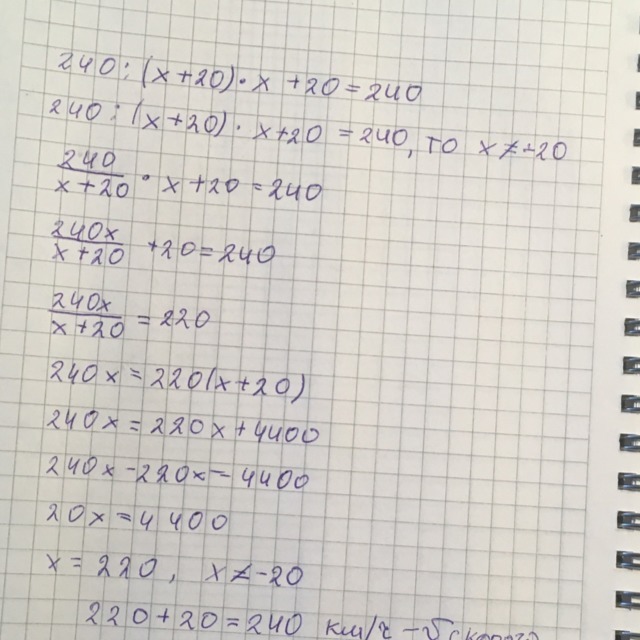 240 : (x+20) · x + 20 = 240
240 : (x+20) · x+20 = 240, то x ≠ -20
240/x+20 · x+20 = 240
240x/x+20 +20 = 240
240x/x+20 = 220
240x = 220(x+20)
240x = 220x + 4400
240x - 220x = 4400
20x = 4400
x = 220, x ≠ -20
220 + 20 = 240 км/ч -